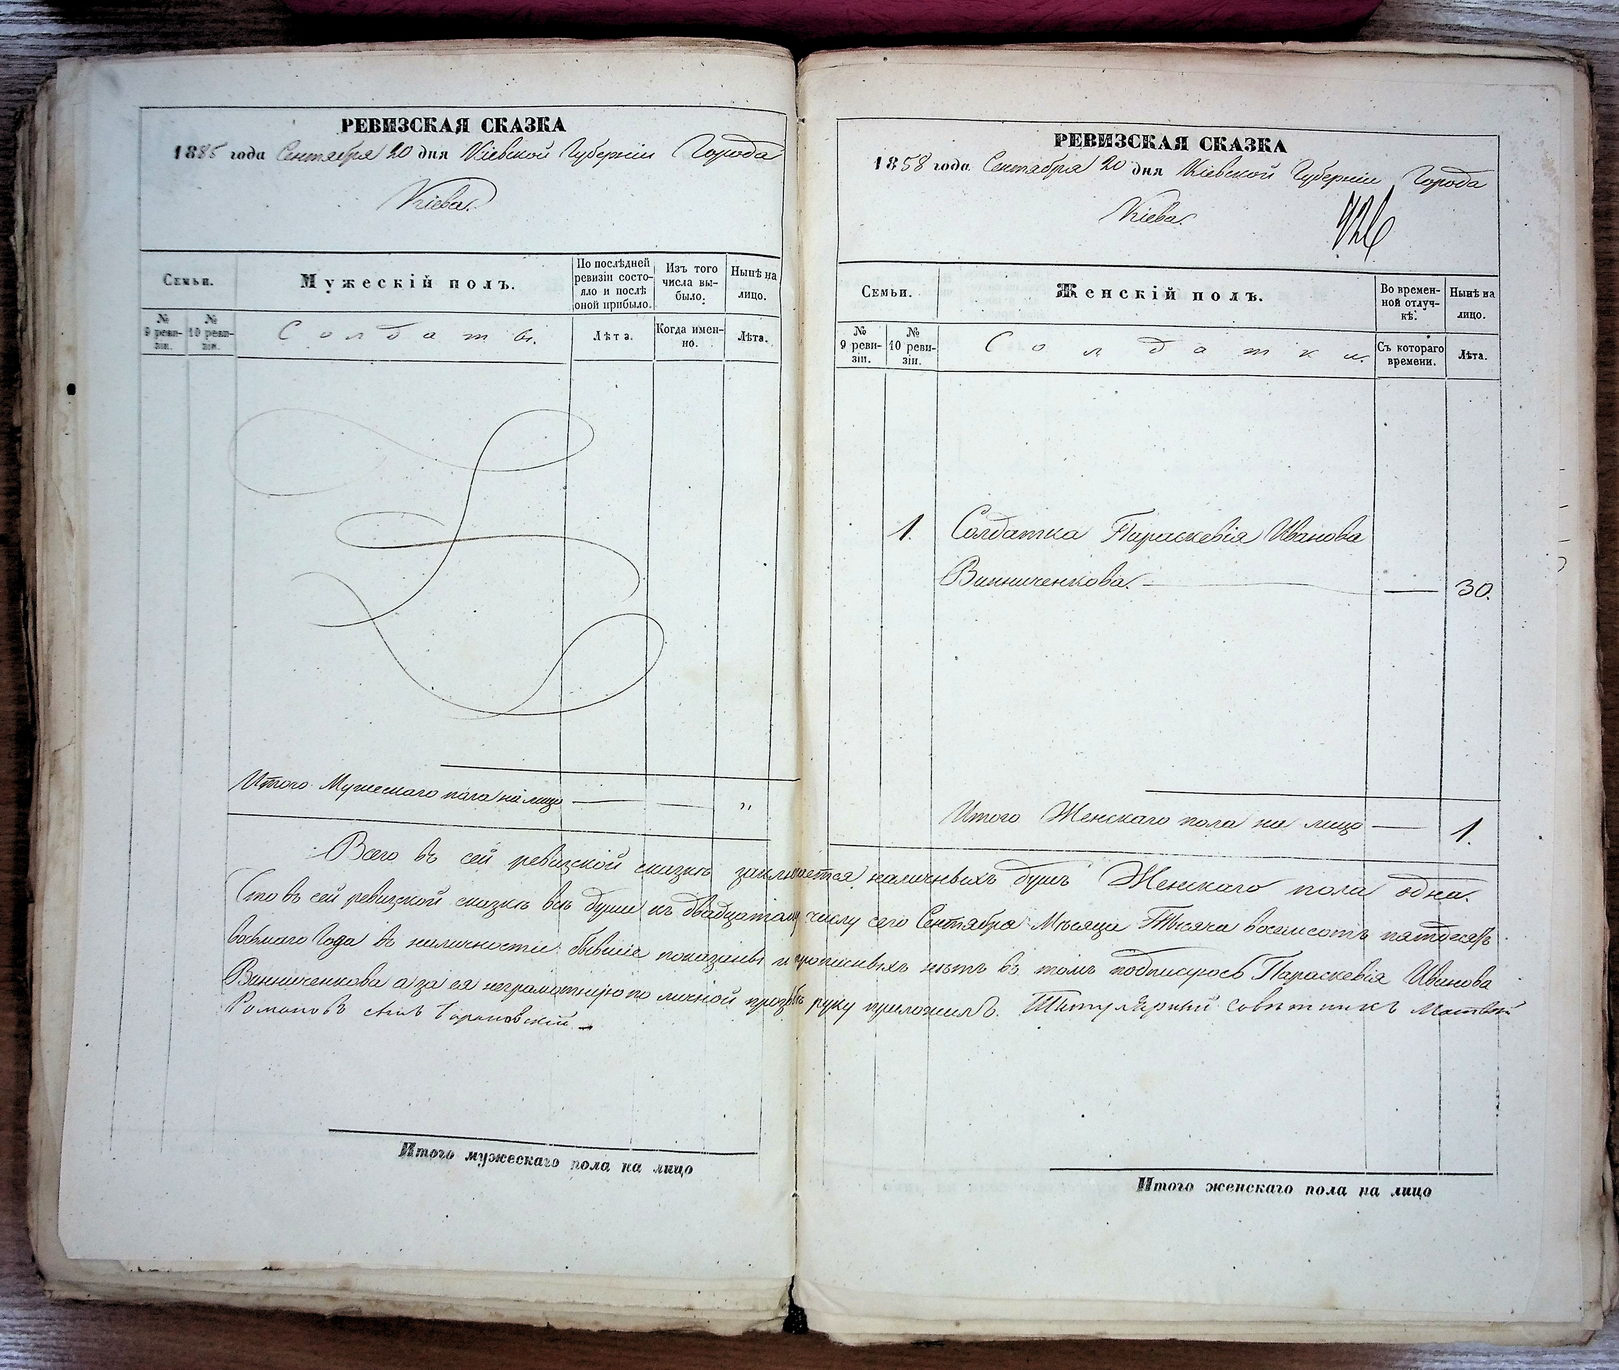 РЕВИЗСКАЯ СКАЗКА
18 года Сентября 20 дня Кіевской Губерніи Города
Кіева.
Семьи.
Мужескій полъ.
По послѣдней ревизіи состо-
яло и послѣ
оной прибыло.
Изъ того
числа вы-
было.
Нынѣ на
лицо.
№
9 реви-
зіи.
№
10 реви-
зіи.
Солдаты.
Лѣта.
Когда имен-
но.
Лѣта.
Итого Мужескаго пола на лицо — — „
РЕВИЗСКАЯ СКАЗКА
1858 года Сентября 20 дня Кіевской Губерніи Города
Кіева.
726
Семьи.
Женскій полъ.
Во времен-
ной отлуч-
кѣ.
Нынѣ на
лицо.
№
9 реви-
зіи.
№
10 реви-
зіи.
Солдатки.
Съ котораго
времени.
Лѣта.
1. Солдатка Параскевія Иванова
Винниченкова. — — 30.
Итого Женскаго пола на лицо — 1.
Всего въ сей ревизской сказкѣ заключается наличныхъ душъ Женскаго пола одна.
Что въ сей ревизской сказкѣ всѣ души къ двадцатому числу сего Сентября Мѣсяца Тысяча восемсотъ пятдесятъ
восьмаго Года въ наличности бывшіе показаны и прописныхъ нѣтъ въ томъ подписуюсь Параскевія Иванова
Винниченкова а за ея неграмотную по личной прозьбѣ руку приложилъ. Титулярный совѣтникъ Матвѣй
Романовъ сынъ
Итого мужескаго пола на лицо
Итого женскаго пола на лицо